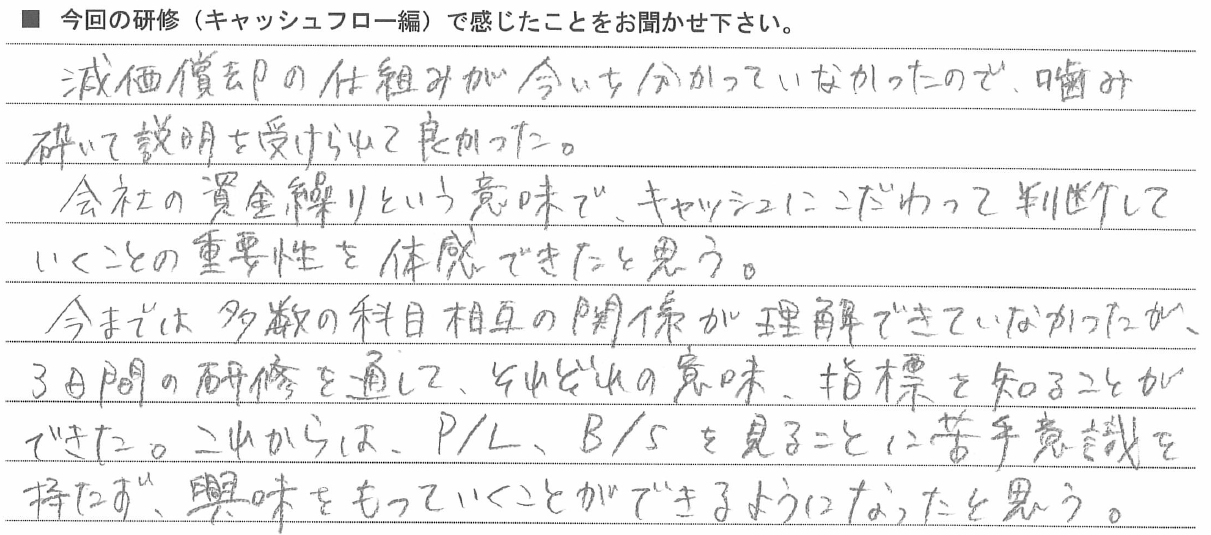 ■ 今回の研修（キャッシュフロー編）で感じたことをお聞かせ下さい。
減価償却の仕組みが今いち分かっていなかったので、噛み
砕いて説明を受けられて良かった。
会社の資金繰りという意味で、キャッシュにこだわって判断して
いくことの重要性を体感できたと思う。
今までは多数の科目相互の関係が理解できていなかったが、
3日間の研修を通して、それぞれの意味、指標を知ることが
できた。これからは、P/L、B/Sを見ることに苦手意識を
持たず、興味をもっていくことができるようになったと思う。